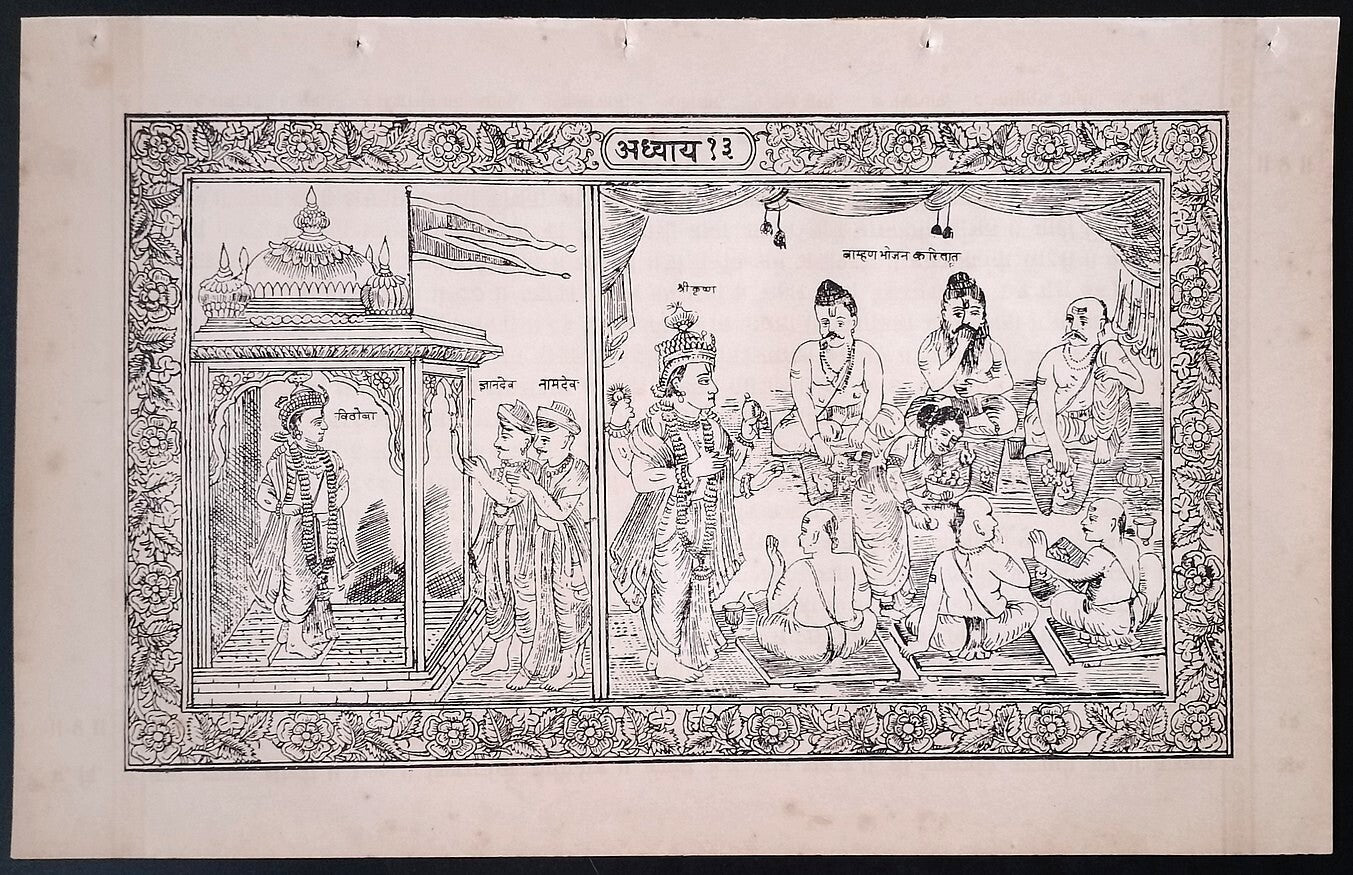 अध्याय १३
विठोबा
ज्ञानदेव नामदेव
श्री कृष्ण
ब्राम्हण भोजन करितात